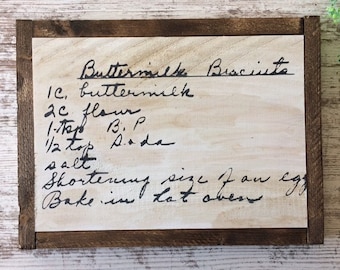 Buttermilk Bisciuts
1c. buttermilk
2c flour
1 tsp B.P
1/2 tsp Soda
salt
Shortening size of an egg
Bake in hot oven